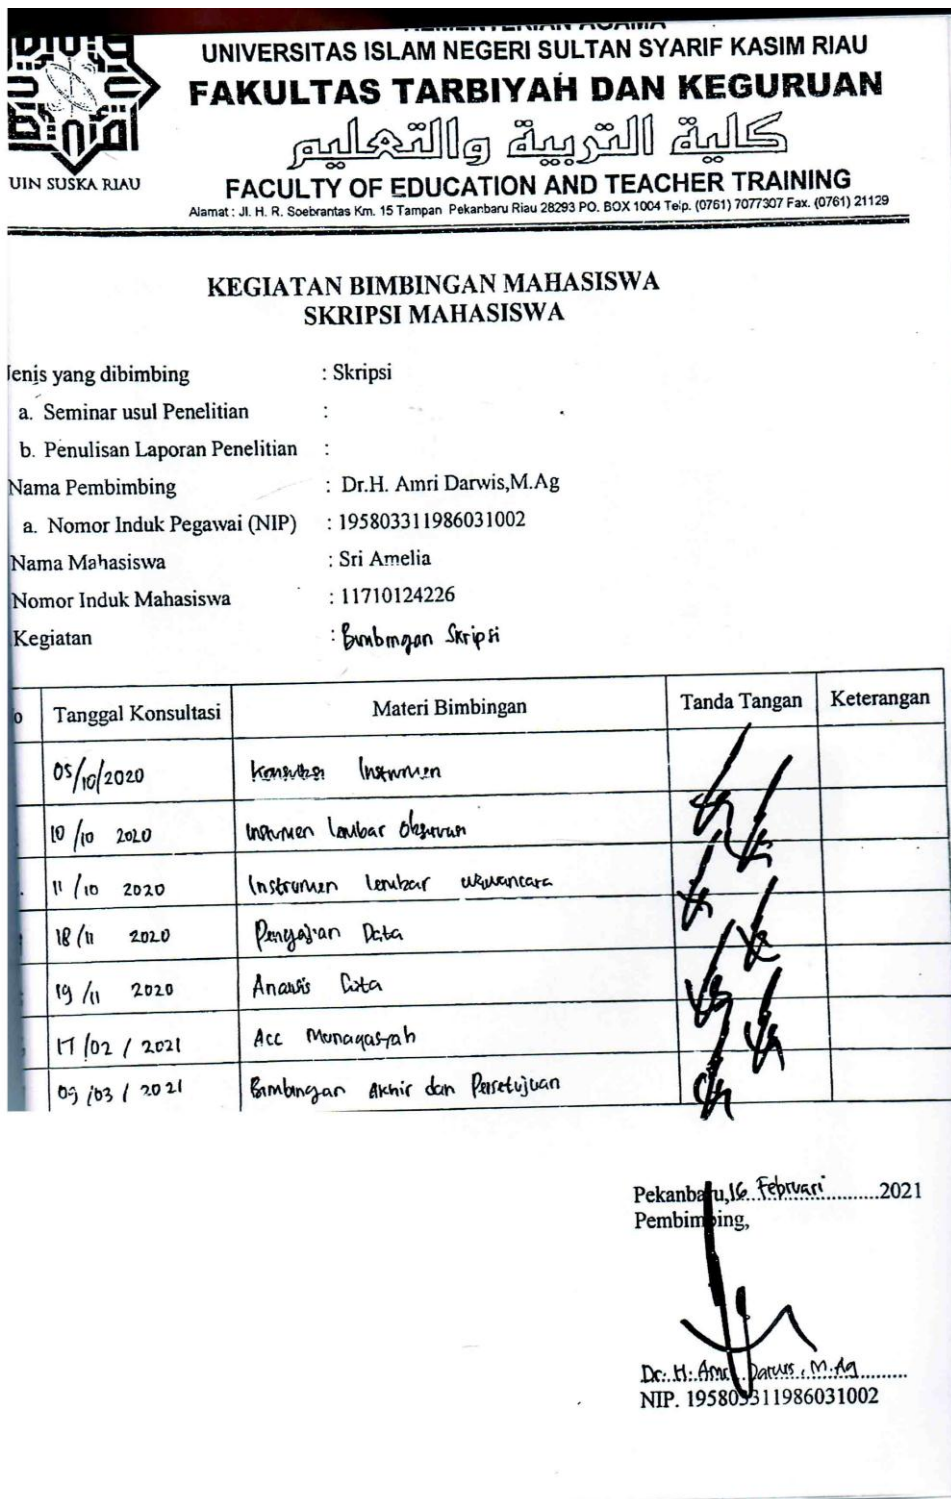 KEMENTERIAN AGAMA
UNIVERSITAS ISLAM NEGERI SULTAN SYARIF KASIM RIAU
FAKULTAS TARBIYAH DAN KEGURUAN
كلية التربية والتعليم
FACULTY OF EDUCATION AND TEACHER TRAINING
Alamat : Jl. H. R. Soebrantas Km. 15 Tampan Pekanbaru Riau 28293 PO. BOX 1004 Telp. (0761) 7077307 Fax. (0761) 21129
UIN SUSKA RIAU
KEGIATAN BIMBINGAN MAHASISWA
SKRIPSI MAHASISWA
Jenis yang dibimbing : Skripsi
a. Seminar usul Penelitian :
b. Penulisan Laporan Penelitian :
Nama Pembimbing : Dr.H. Amri Darwis,M.Ag
a. Nomor Induk Pegawai (NIP) : 195803311986031002
Nama Mahasiswa : Sri Amelia
Nomor Induk Mahasiswa : 11710124226
Kegiatan : Bimbingan Skripsi
o Tanggal Konsultasi Materi Bimbingan Tanda Tangan Keterangan
05/10/2020 Instrumen
10/10 2020 Lembar Observasi
11/10 2020 Instrumen lembar wawancara
18/11 2020 Penyajian Data
19/11 2020 Analisis Data
17/02/2021 Acc Munaqasyah
09/03/2021 Bimbingan Akhir dan Persetujuan
Pekanbaru, 16 Februari 2021
Pembimbing,
Dr. H. Amri Darwis, M.Ag
NIP. 195803311986031002